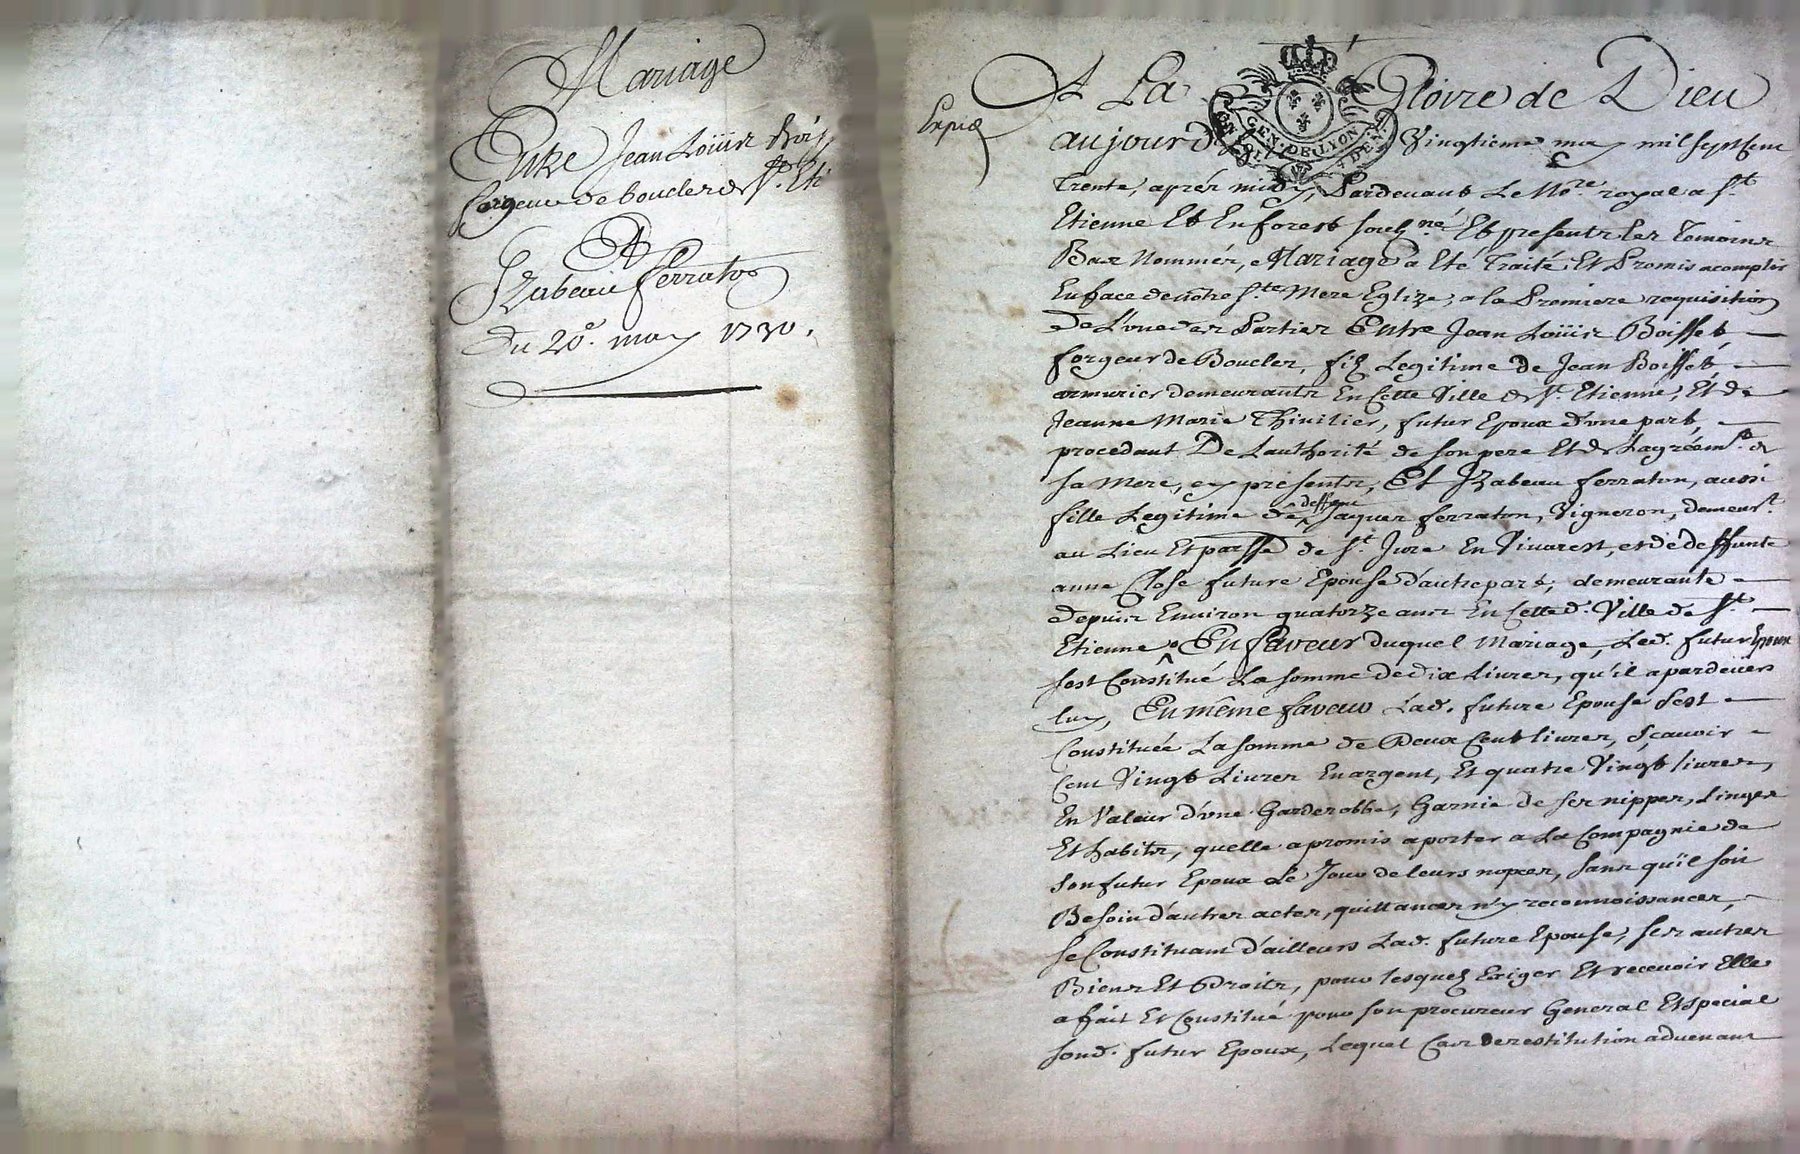 Mariage
Entre Jean Loüis Bois
forgeur de boucles de St. Eti
Et
Izabeau Ferraton
du 20e. may 1730.
Expié
A La Gloire de Dieu
GEN. DE LYON
aujourd'huy Vingtieme may mil sept cent
Trente, aprés midy, Pardevant Le No.re royal a St.
Etienne Et En forest souss.né Et presents les Temoins
Bas Nommés, Mariage a Eté Traité Et Promis acomplir
En face de nôtre S.te Mere Eglize, a la Premiere requisition
De L'vne des Parties Entre Jean Loüis Boisset
forgeur de Boucles, filz Legitime de Jean Boisset
armurier demeurants En Cette Ville de St. Etienne, Et de
Jeanne Marie Thivilier, futur Epoux d'vne part,
procedant De Lauthorité de son pere Et de Lagréem.t de
sa Mere, cy presents, Et Izabeau Ferraton, aussi
fille Legitime de deffunt Jaques Ferraton, Vigneron, demeur.t
au Lieu Et parsse de St. Jure En Vivarest, et de deffunte
anne Close future Epouse d'autre part, demeurante
depuis Environ quatorze ans En Cette d. Ville de St.
Etienne En faveur duquel Mariage, Led. futur Epoux
s'est Constitué La somme de dix Livres, qu'il a pardevers
luy, En même faveur Lad. future Epouse s'est
Constituée La somme de Deux Cent livres, sçavoir
Cent Vingt Livres En argent, Et quatre Vingt livres,
En Valeur d'vne Garderobbe, Garnie de ses nippes, Linges
Et habits, quelle a promis aporter a La Compagnie de
son futur Epoux Le Jour de leurs nopces, sans qu'il soit
Besoin d'autres actes, quittances n'y reconnoissances,
se Constituant d'ailleurs Lad. future Epouse, ses autres
Biens Et Droits, pour lesquelz Exiger Et recevoir Elle
a fait Et Constitué pour son procureur General Et special
sond. futur Epoux, Lequel Cas de restitution advenant